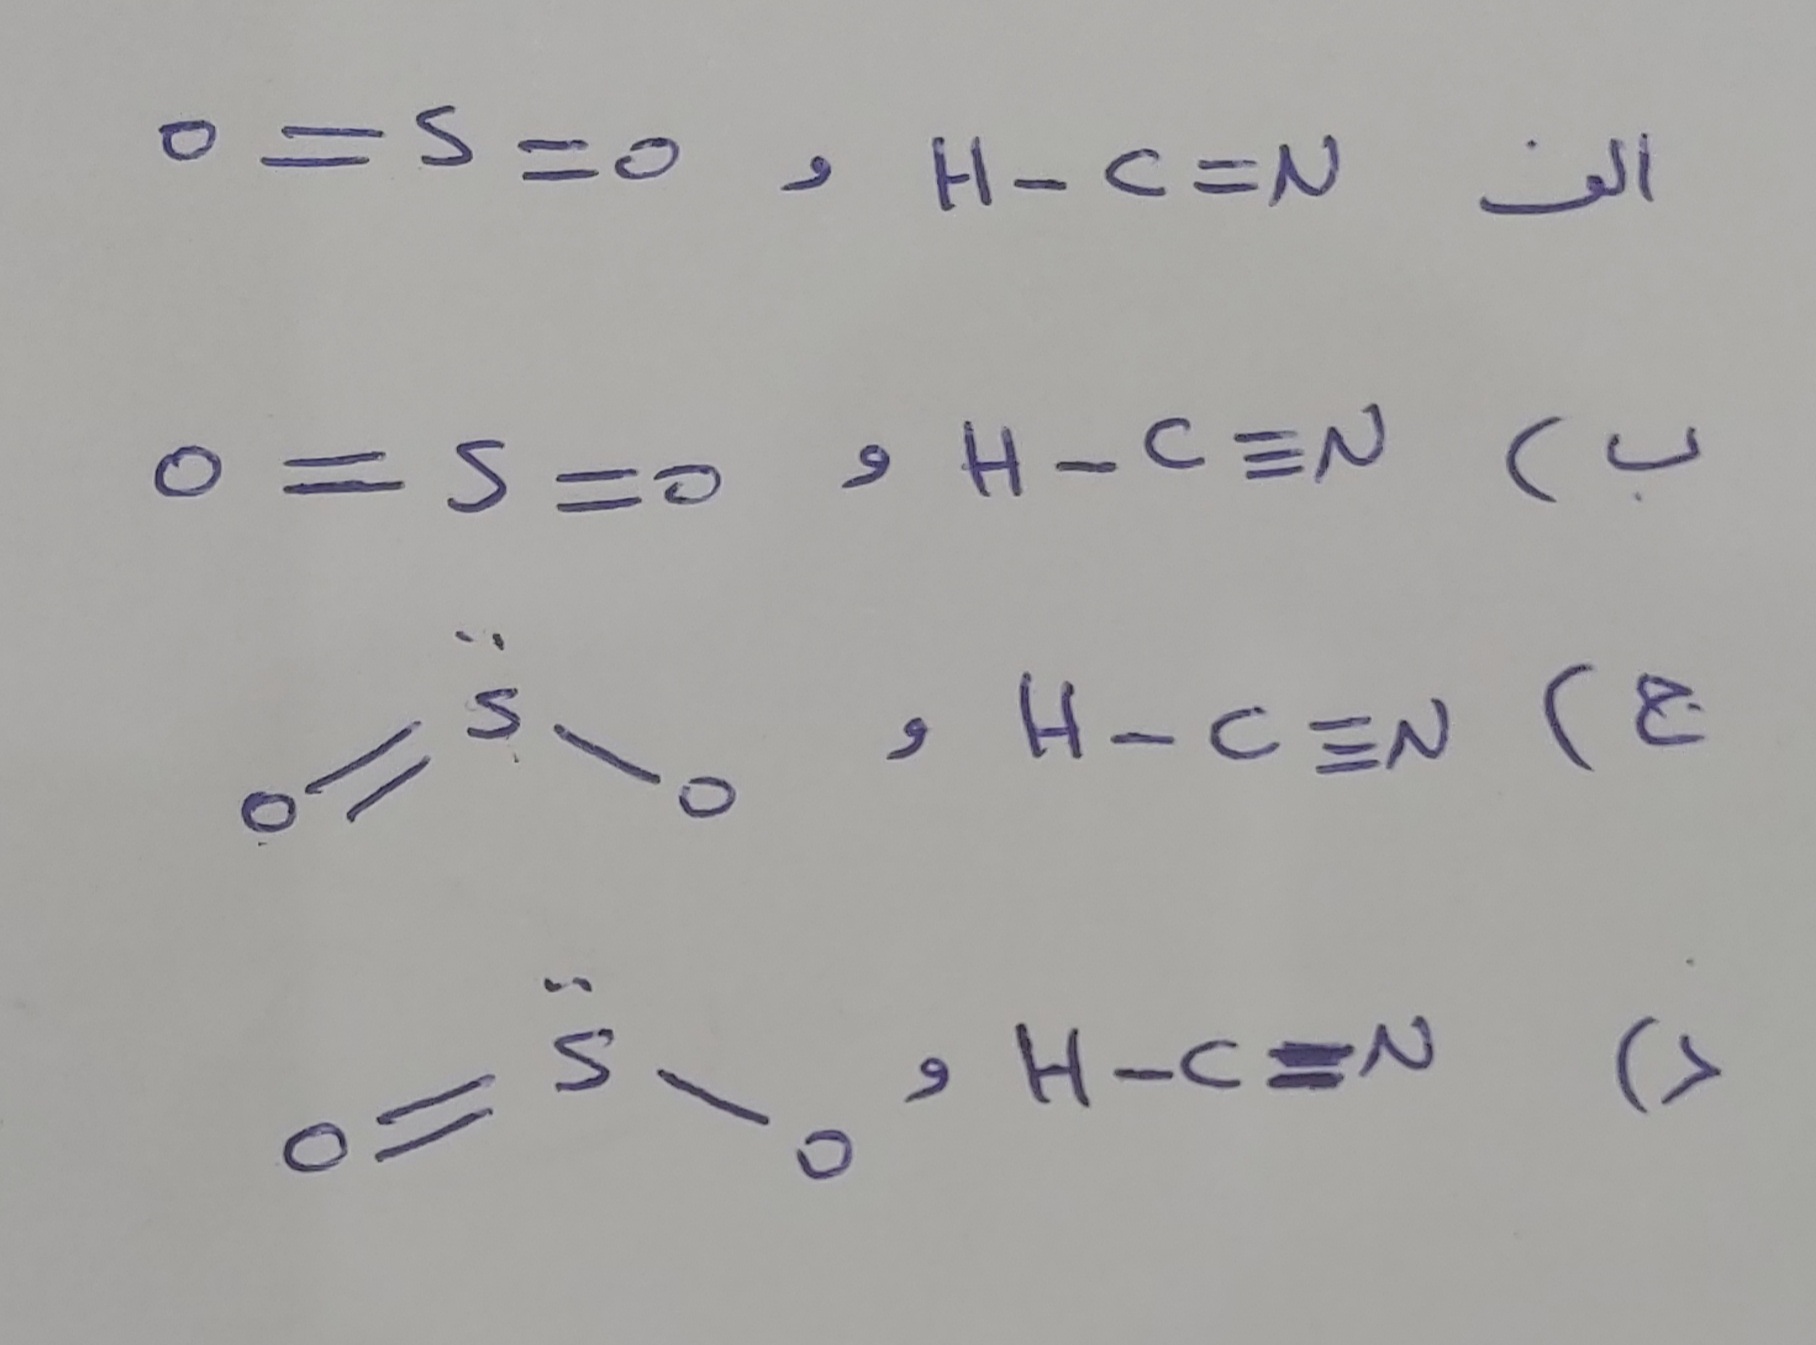 الف H-C=N و O=S=O
ب) H-C≡N و O=S=O
ج) H-C≡N و O=S̈-O
د) H-C≡N و O=S̈-O